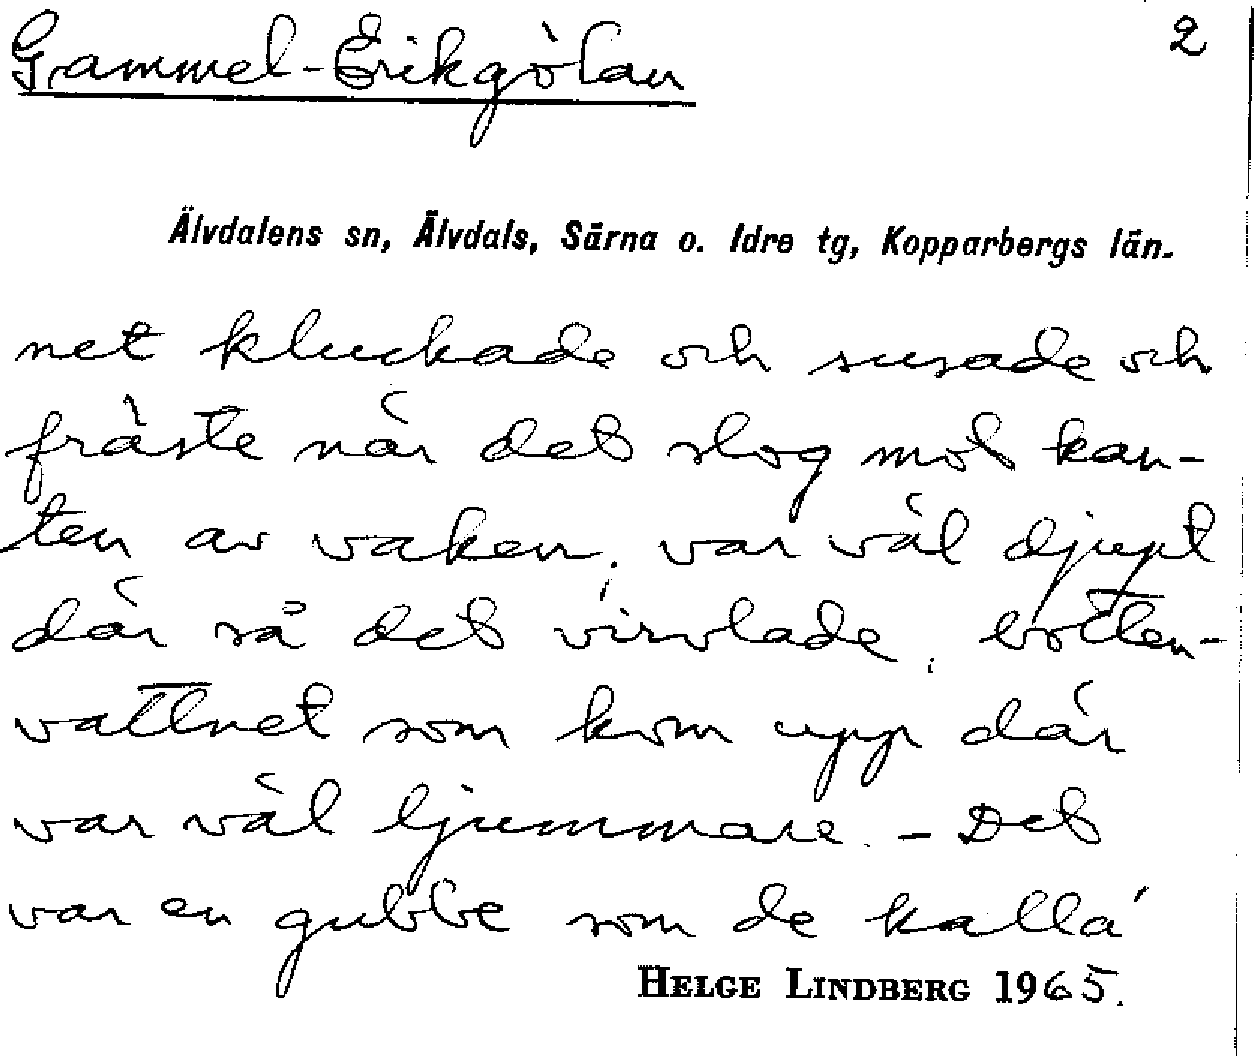 Gammel-Erikgölan
2
Älvdalens sn, Älvdals, Särna o. Idre tg, Kopparbergs län.
net kluckade och susade och
fräste när det slog mot kan-
ten av vaken; var väl djupt
där så det virvlade; botten-
vattnet som kom upp där
var väl ljummare. - Det
var en gubbe som de kalla'
HELGE LINDBERG 1965.